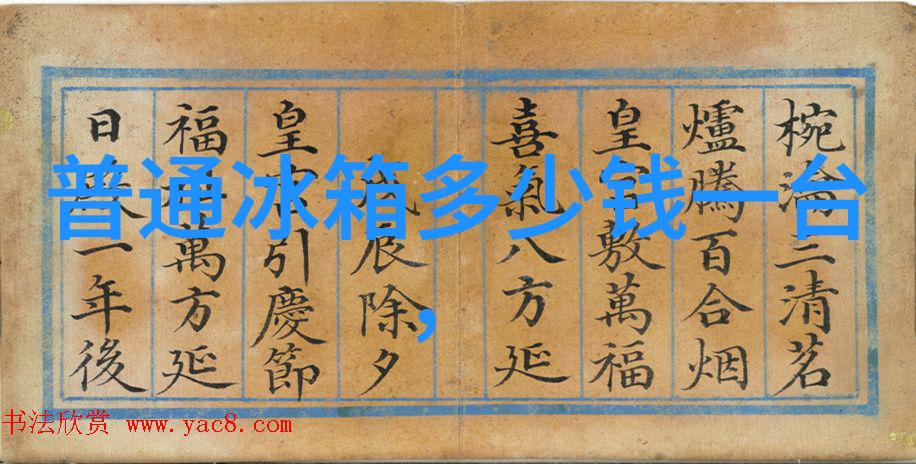 普通冰箱多少钱一台
，
椀三清茗
爐騰百合烟
皇敷萬福
喜氣八方延
辰除夕
皇引慶節
福萬方延
日一年後
书法欣赏 www.yac8.com